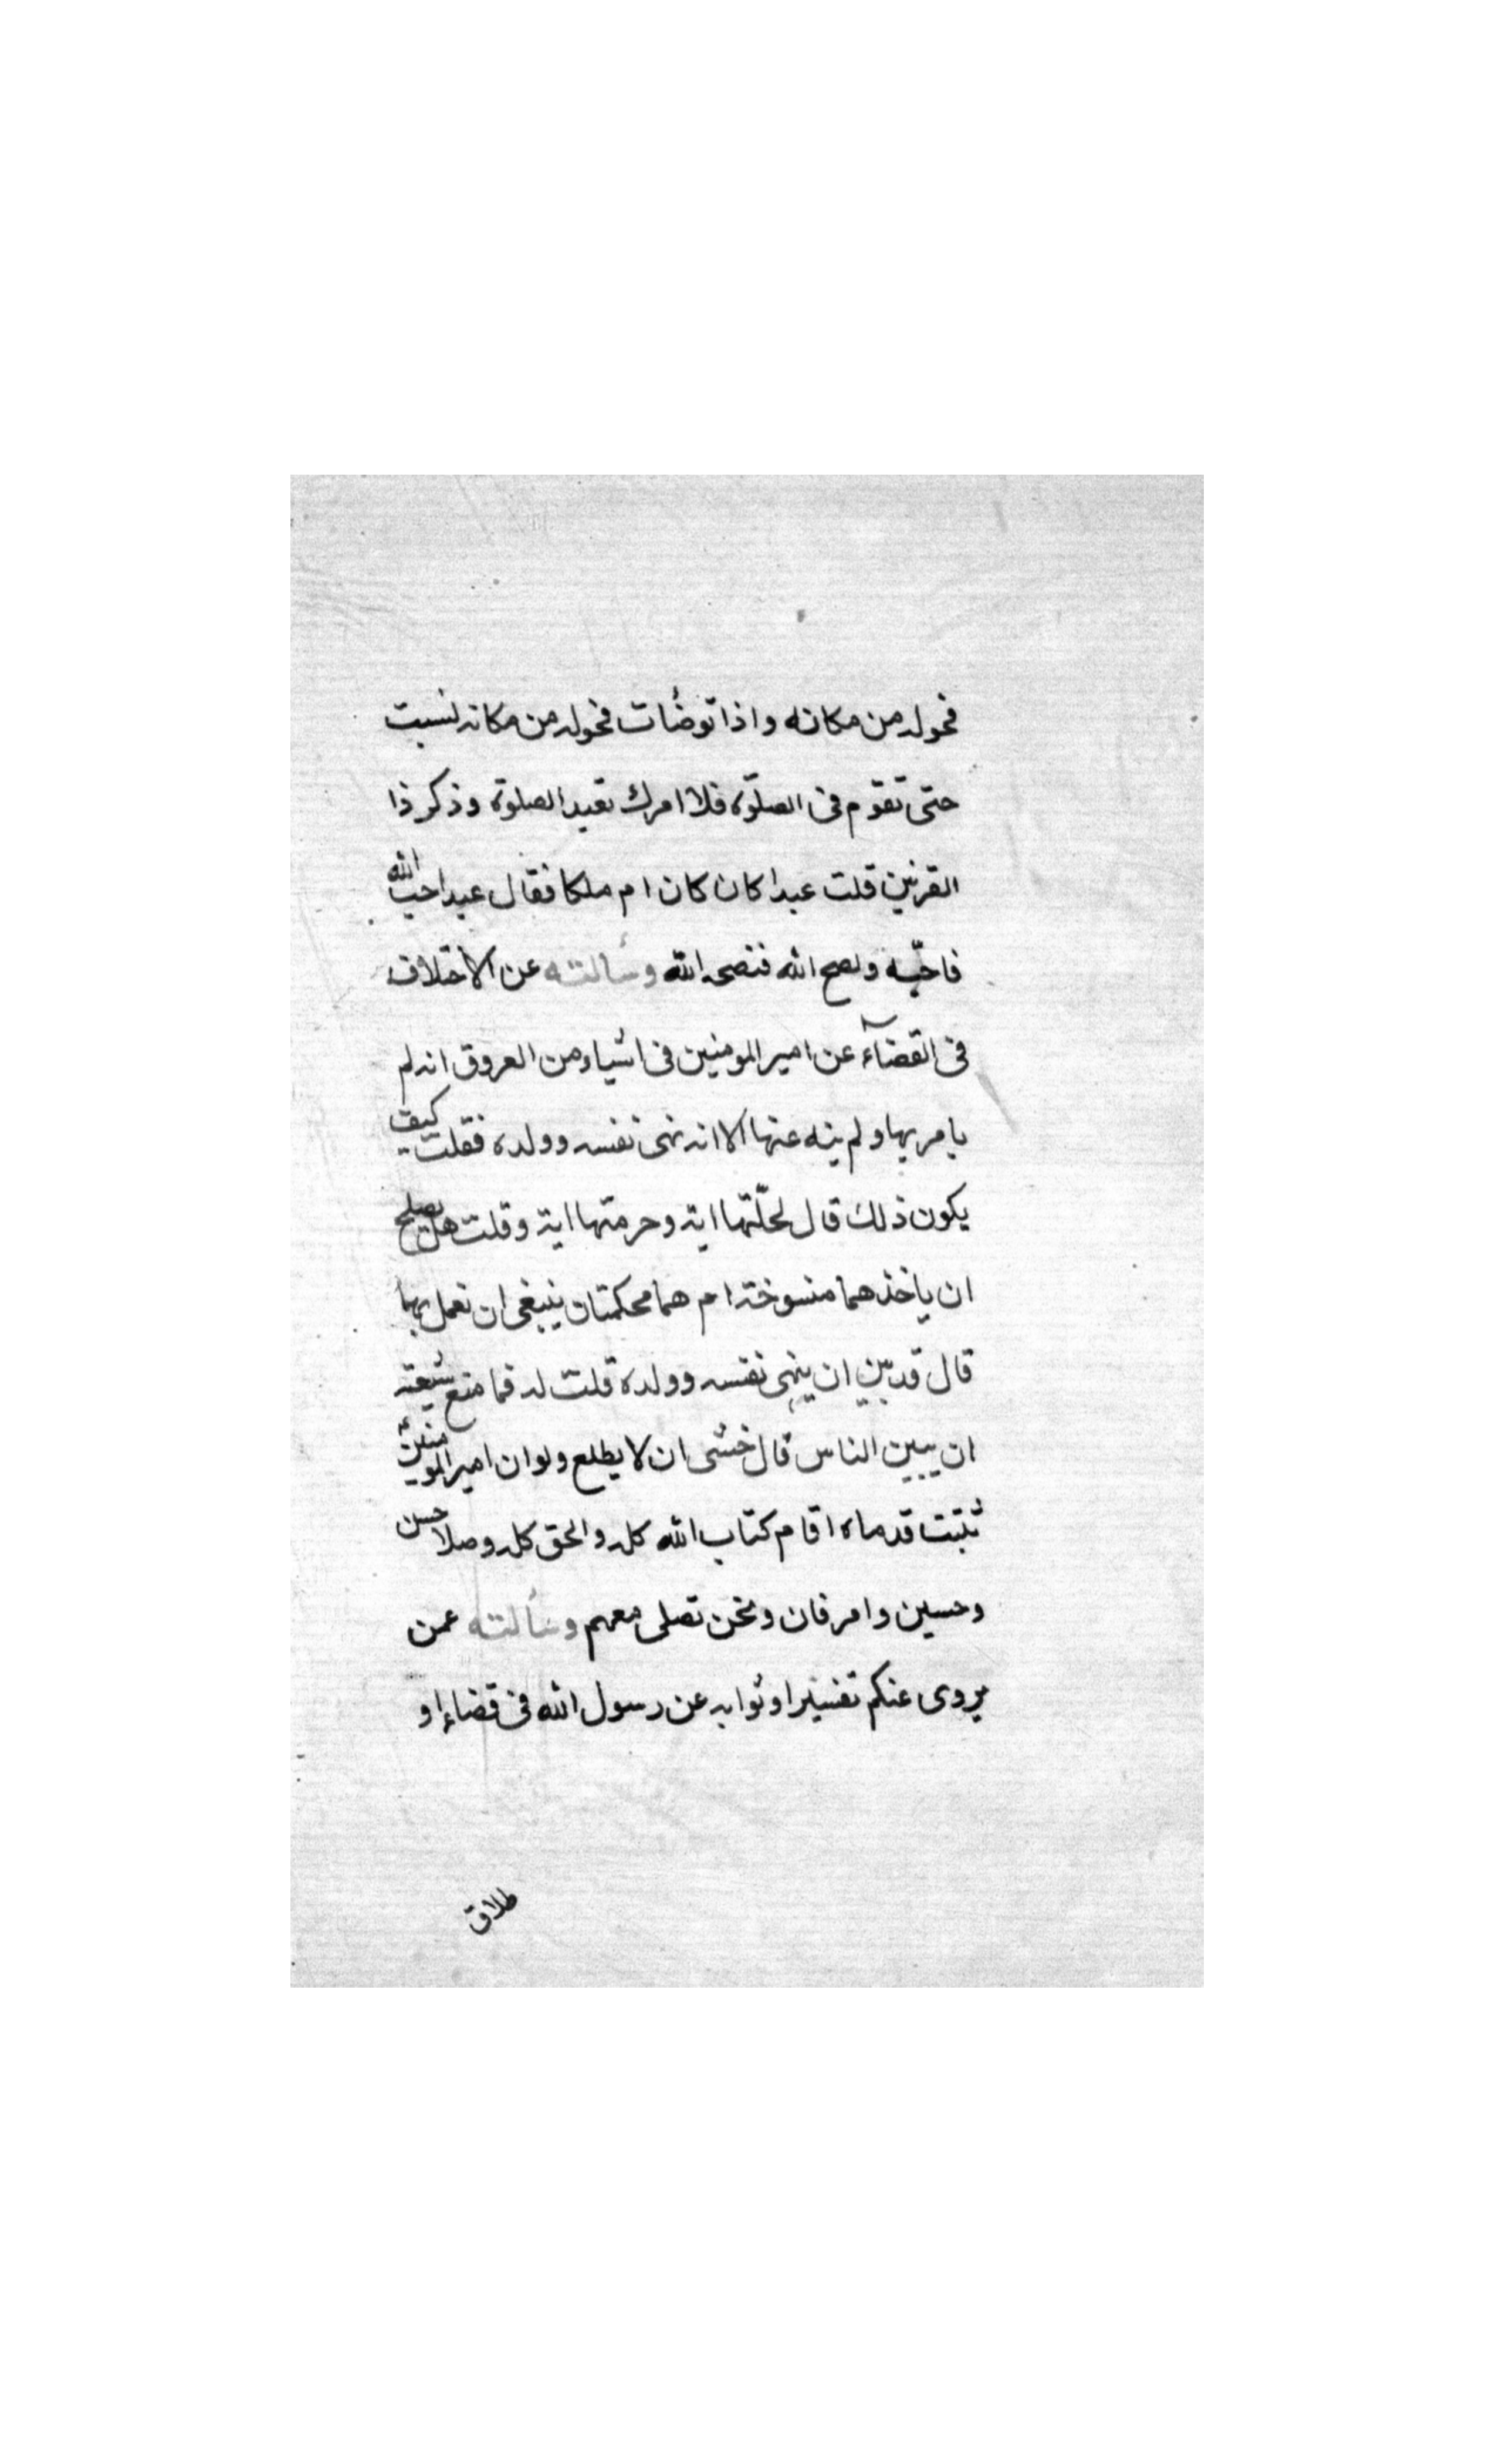 فحوله من مكانه واذا توضأت فحوله من مكانه لنسيت
حتى تقوم فى الصلوة فلا امرك تعيد الصلوة وذكر ذا
القرنين قلت عبدا كان كان ام ملكا فقال عبد احب الله
فاحبّه ونصح الله فنصحه الله وسألته عن الاختلاف
فى القضآء عن امير المومنين فى اشياء من العروق انه لم
يامر بها ولم ينه عنها الا انه نهى نفسه وولده فقلت كيف
يكون ذلك قال لحلّتها اية وحرمتها اية وقلت هل يصلح
ان ياخذهما منسوخة ام هما محكمتان ينبغى ان نعمل بهما
قال قد بين ان ينهى نفسه وولده قلت له فما منع شيعته
ان يبين الناس قال خشى ان لا يطلع ولو ان امير المومنين
ثبتت قدماه اقام كتاب الله كله والحق كله وصلا حسن
وحسين وامرفان ونحن نصلى معهم وسألته عمن
يروى عنكم تفسيرا وثوابه عن رسول الله فى قضاء او
طلاق